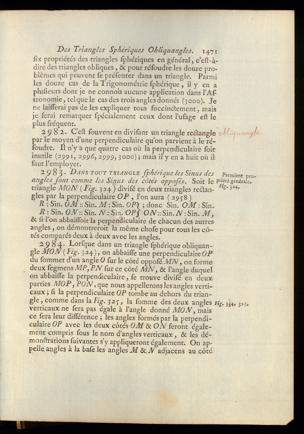 Des Triangles Sphériques Obliquangles. 1471
six propriétés des triangles sphériques en général, c'est-à-
dire des triangles obliques, & pour résoudre les douze pro-
blêmes qui peuvent se présenter dans un triangle. Parmi
les douze cas de la Trigonométrie sphérique, il y en a
plusieurs dont je ne connois aucune application dans l'As-
tronomie, tel que le cas des trois angles donnés (3000). Je
ne laisserai pas de les expliquer tous succinctement, mais
je ferai remarquer spécialement ceux dont l'usage est le
plus fréquent.
2982. C'est souvent en divisant un triangle rectangle
par le moyen d'une perpendiculaire qu'on parvient à le ré-
soudre. Il n'y a que quatre cas où la perpendiculaire soit
inutile (2991, 2996, 2999, 3000); mais il y en a huit où il
faut l'employer.
obliquangle
2983. DANS TOUT TRIANGLE sphérique les Sinus des
angles sont comme les Sinus des côtés opposés. Soit le
triangle MON (Fig. 324) divisé en deux triangles rectan-
gles par la perpendiculaire OP, l'on aura (2958)
R : Sin. OM :: Sin. M : Sin. OP } donc Sin. OM : Sin.
R : Sin. ON :: Sin. N : Sin. OP } ON :: Sin. N : Sin. M,
& si l'on abbaissoit la perpendiculaire de chacun des autres
angles, on démontreroit la même chose pour tous les cô-
tés comparés deux à deux avec les angles.
Premiere pro-
priété générale.
Fig. 324.
2984. Lorsque dans un triangle sphérique obliquan-
gle MON (Fig. 324), on abbaisse une perpendiculaire OP
du sommet d'un angle O sur le côté opposé MN, on forme
deux segmens MP, PN sur ce côté MN, & l'angle duquel
on abbaisse la perpendiculaire, se trouve divisé en deux
parties MOP, PON, que nous appellerons les angles verti-
caux; si la perpendiculaire OP tombe au dehors du trian-
gle, comme dans la Fig. 325, la somme des deux angles
verticaux ne sera pas égale à l'angle donné MON, mais
ce sera leur différence; les angles formés par la perpendi-
culaire OP avec les deux côtés OM & ON seront égale-
ment compris sous le nom d'angles verticaux, & les dé-
monstrations suivantes s'y appliqueront également. On ap-
pelle angles à la base les angles M & N adjacens au côté
Fig. 324. 325.